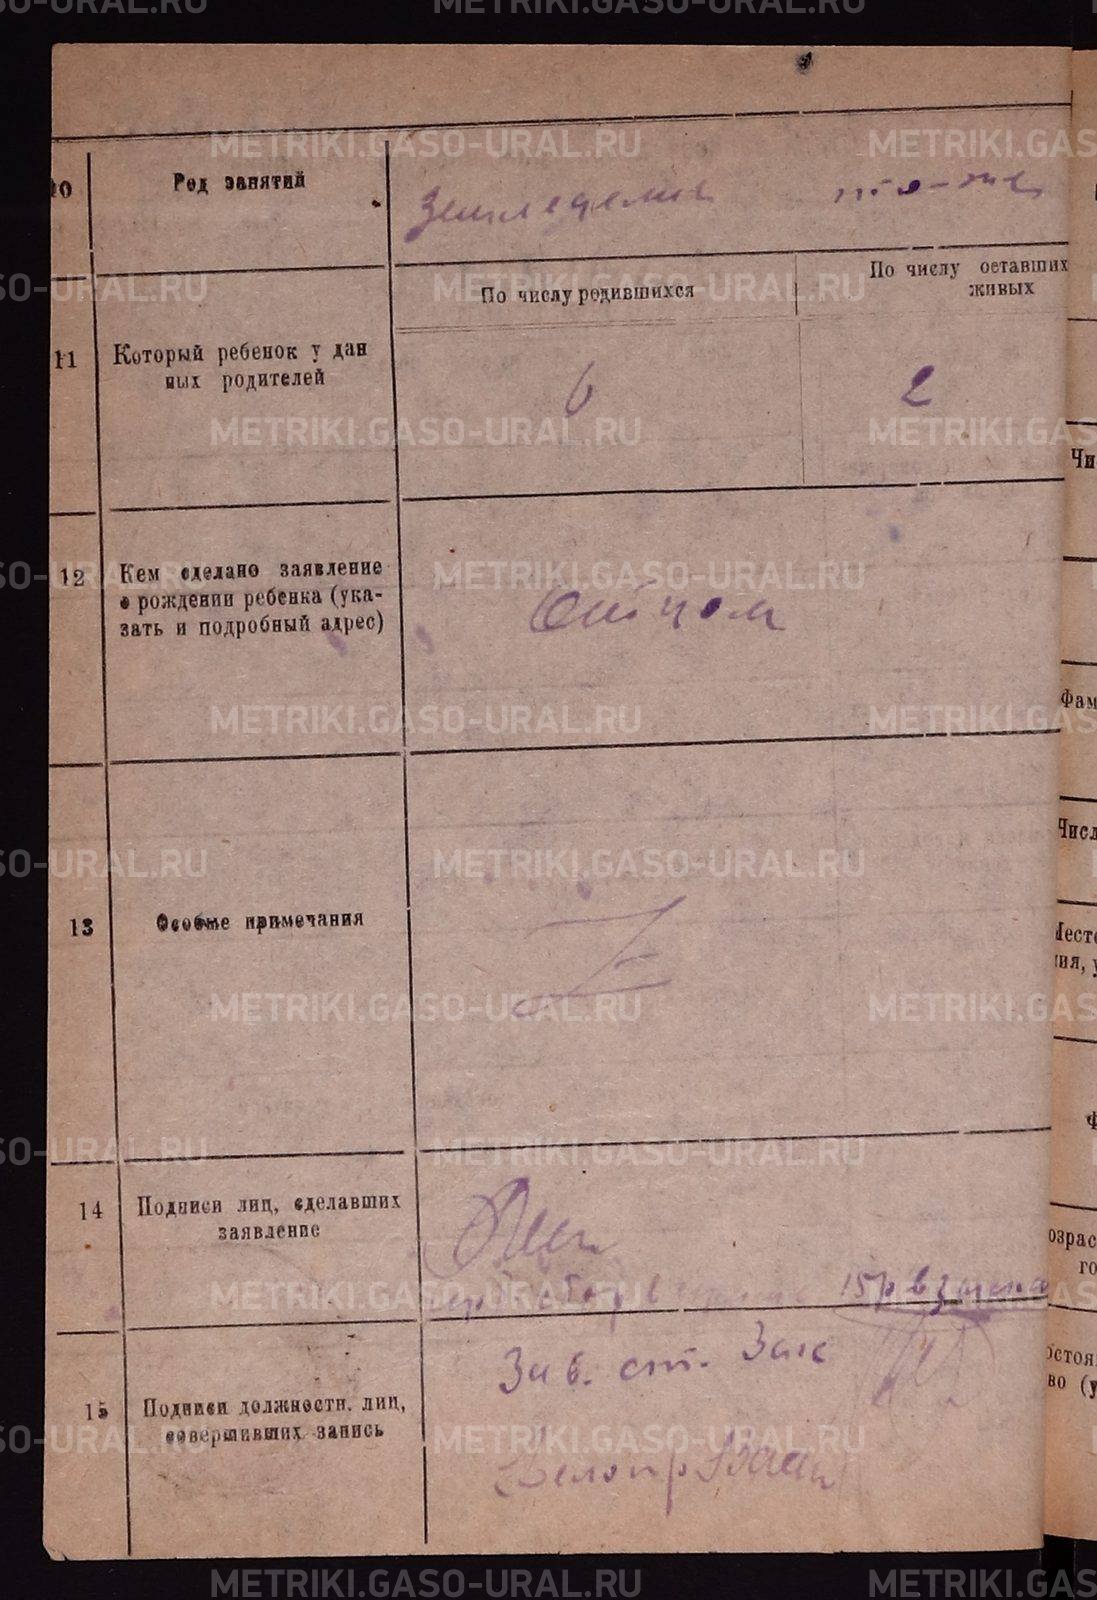 METRIKI.GASO-URAL.RU
10 Род занятий Земледелие то-же
По числу родившихся
По числу оставших
живых
11 Который ребенок у дан
ных родителей 6 2
12 Кем сделано заявление
о рождении ребенка (ука-
зать и подробный адрес) Отцом
13 Особые примечания Z
14 Подписи лиц, сделавших
заявление
15 Подписи должностн. лиц,
совершивших запись
Зав. ст. Загс
Делопр
Чи
Фам
Числ
Место
ния, у
Ф
озрас
го
остоя
во (у